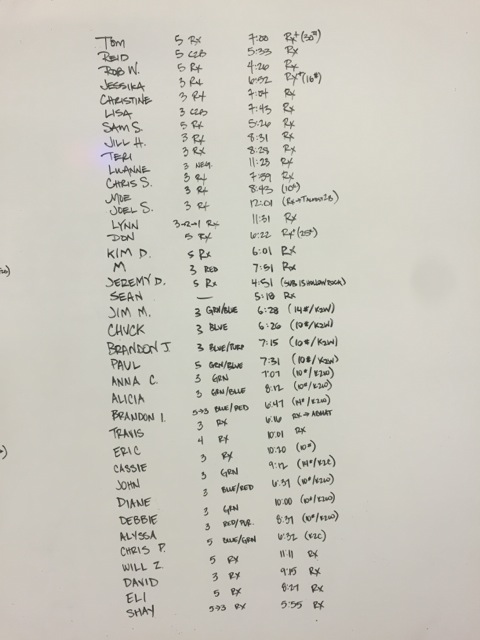 TOM 5 Rx 7:00 Rx+ (30#)
REID 5 C2B 5:33 Rx
ROB W. 5 Rx 4:26 Rx
JESSIKA 3 Rx 6:52 Rx+ (16#)
CHRISTINE 3 Rx 7:54 Rx
LISA 3 C2B 7:43 Rx
SAM S. 5 Rx 5:26 Rx
JILL H. 3 Rx 8:31 Rx
TERI 3 Rx 8:28 Rx
LUANNE 3 NEG. 11:23 Rx
CHRIS S. 3 Rx 7:59 Rx
MOE 3 Rx 8:43 (10#)
JOEL S. 3 Rx 12:01
LYNN 3→2→1 Rx 11:51 Rx
DON 5 Rx 6:22 Rx+ (25#)
KIM D. 5 Rx 6:01 Rx
M 3 RED 7:51 Rx
JEREMY D. 5 Rx 4:51 (SUB 15 HOLLOW ROCK)
SEAN — 5:18 Rx
JIM M. 3 GRN/BLUE 6:28 (14#/K2W)
CHUCK 3 BLUE 6:26 (10#/K2W)
BRANDON J. 3 BLUE/PURP 7:15 (10#/K2W)
PAUL 5 GRN/BLUE 7:31 (10#/K2W)
ANNA C. 3 GRN 7:07 (10#/K2W)
ALICIA 3 GRN/BLUE 8:12 (10#/K2W)
BRANDON I. 5→3 BLUE/RED 6:47 (14#/K2W)
TRAVIS 3 Rx 6:16 Rx → ABMAT
ERIC 4 Rx 10:01 Rx
CASSIE 3 Rx 10:20 (10#)
JOHN 3 GRN 9:12 (14#/K2C)
DIANE 3 BLUE/RED 6:37 (10#/K2W)
DEBBIE 3 GRN 10:00 (10#/K2W)
ALYSSA 3 RED/PUR. 8:37 (10#/K2W)
CHRIS P. 5 BLUE/GRN 6:32 (K2C)
WILL Z 5 Rx 11:11 Rx
DAVID 3 Rx 9:15 Rx
ELI 5 Rx 8:27 Rx
SHAY 5→3 Rx 5:55 Rx